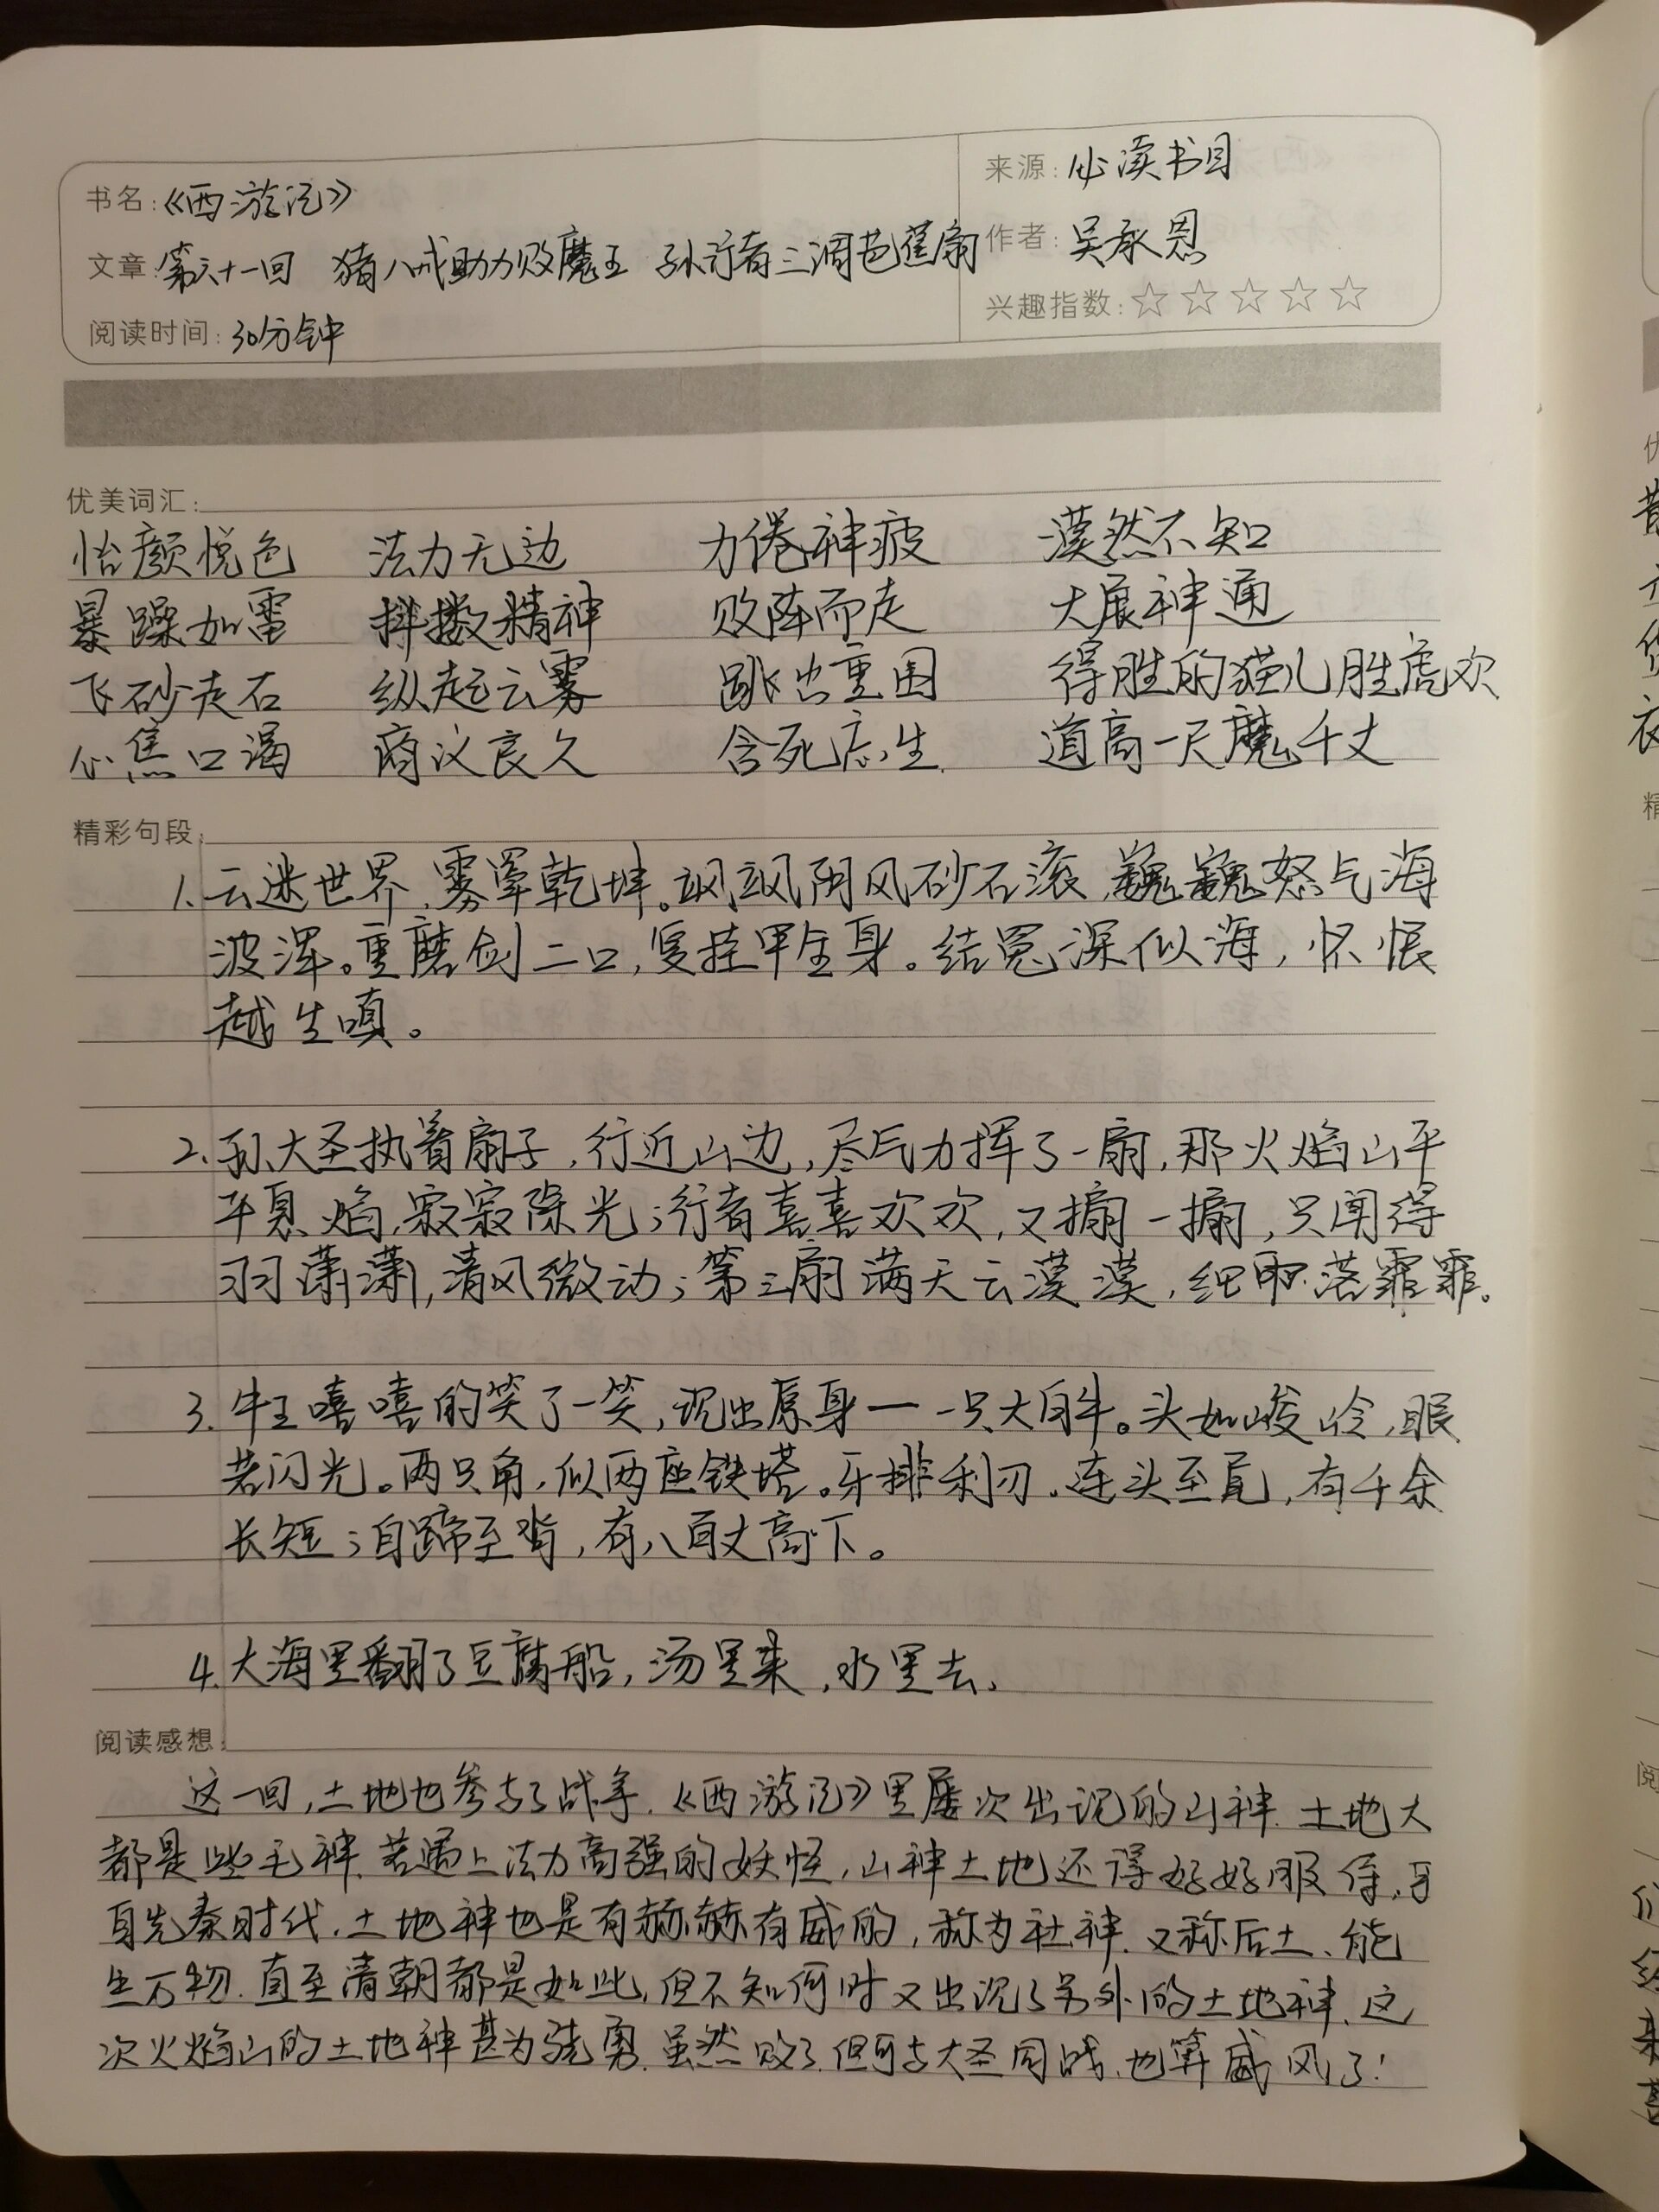 书名:《西游记》
来源:必读书目
文章:第六十一回 猪八戒助力败魔王 孙行者三调芭蕉扇
作者:吴承恩
阅读时间:30分钟
兴趣指数:☆☆☆☆☆
优美词汇:
怡颜悦色 法力无边 力倦神疲 漠然不知
暴躁如雷 抖擞精神 败阵而走 大展神通
飞砂走石 纵起云雾 跳出重围 得胜的猫儿胜虎欢
心焦口渴 商议良久 舍死忘生 道高一尺魔千丈
精彩句段:
1.云迷世界,雾罩乾坤。飒飒阴风砂石滚,巍巍怒气海
波浑。重磨剑二口,复挂甲全身。结冤深似海,怀恨
越生嗔。
2.孙大圣执着扇子,行近山边,尽气力挥了一扇,那火焰山平
平息焰,寂寂除光;行者喜喜欢欢,又搧一搧,只闻得
习习潇潇,清风微动;第三扇满天云漠漠,细雨落霏霏。
3.牛王嘻嘻的笑了一笑,现出原身一一只大白牛。头如峻岭,眼
若闪光。两只角,似两座铁塔。牙排利刃。连头至尾,有千余
长短;自蹄至背,有八百丈高下。
4.大海里翻了豆腐船,汤里来,水里去。
阅读感想:
这一回,土地也参与了战争.《西游记》里屡次出现的山神.土地大
都是些毛神.若遇上法力高强的妖怪,山神土地还得好好服侍.
自先秦时代.土地神也是有赫赫有威的,称为社神.又称后土、能
生万物.直至清朝都是如此,但不知何时又出现了另外的土地神.这
次火焰山的土地神甚为骁勇.虽然败了.但可与大圣同战,也算威风了!